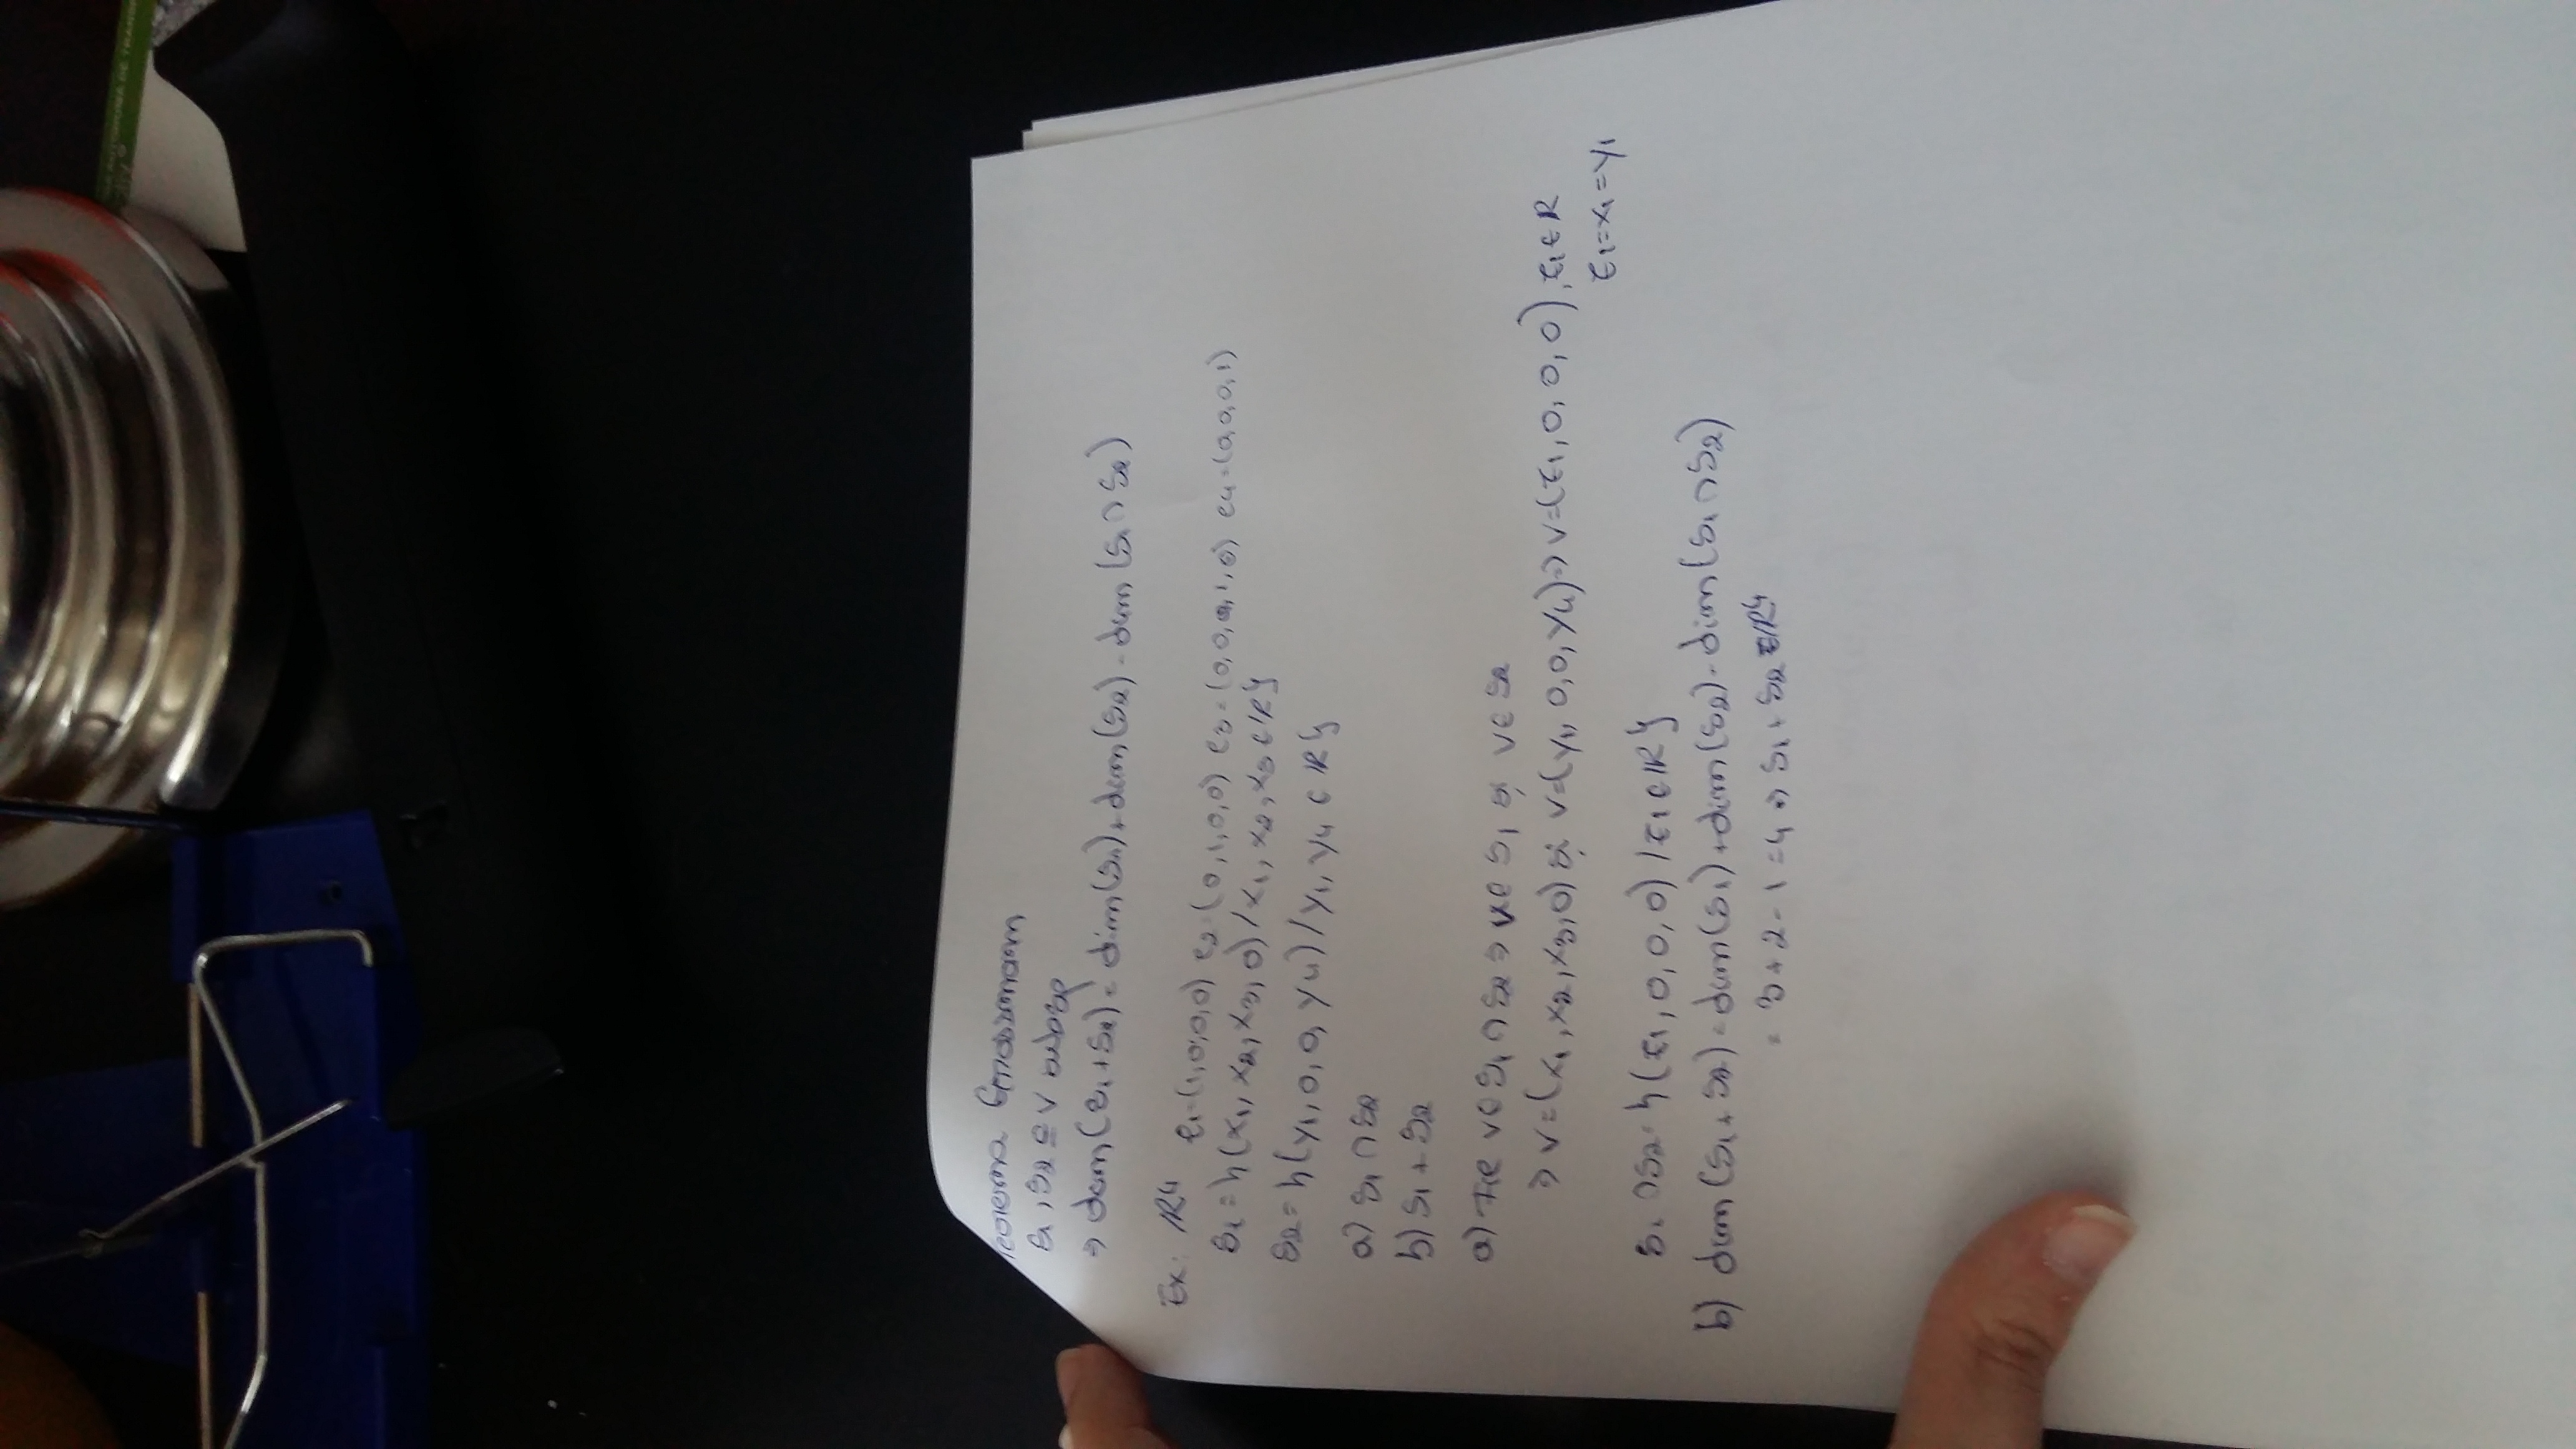 AUTONOMA DE TRANS
Teorema Grassmann
S1, S2 ⊆ V subsp
⇒ dim(S1+S2) = dim(S1)+dim(S2)-dim(S1∩S2)
Ex: ℝ4 e1=(1,0,0,0) e2=(0,1,0,0) e3=(0,0,0,1,0) e4=(0,0,0,1)
S1={(x1, x2, x3, 0)/x1, x2, x3 ∈ ℝ}
S2={(y1, 0, 0, y4)/y1, y4 ∈ ℝ}
a) S1∩S2
b) S1+S2
a) Fie v∈S1∩S2 ⇒ v∈S1 și v∈S2
⇒ v=(x1, x2, x3, 0) și v=(y1, 0, 0, y4) ⇒ v=(t1, 0, 0, 0), t1∈ℝ
t1=x1=y1
S1∩S2={(t1, 0, 0, 0) / t1∈ℝ}
b) dim(S1+S2)=dim(S1)+dim(S2)-dim(S1∩S2)
= 3+2-1=4 ⇒ S1+S2 = ℝ4